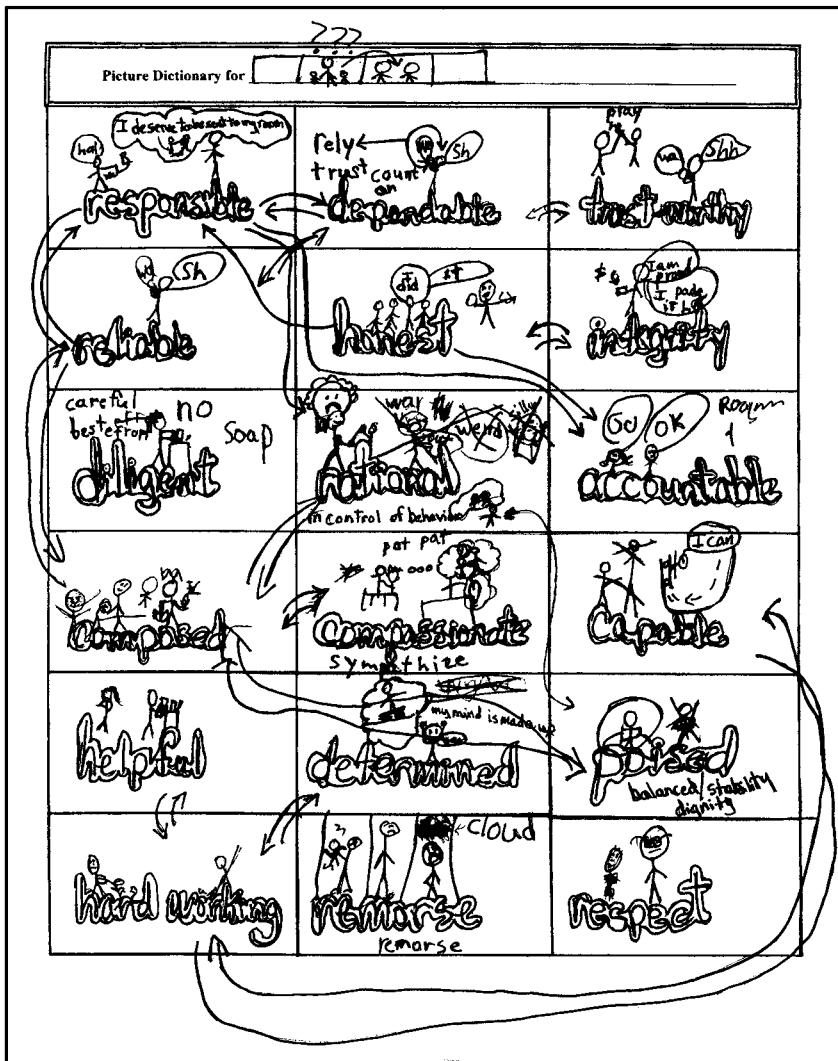 ? ? ?
Picture Dictionary for
ha!
I deserve to be sent to my room
responsible
rely
trust
count
on
wa
Sh
dependable
play
wa
Shh
trust-worthy
wa
Sh
reliable
I
did
it
honest
$
I am
proud
integrity
careful
best effort
no
soap
diligent
war
rational
in control of behaviour
Go
OK
accountable
composed
pat pat
compassionate
sympathize
I can
capable
helpful
my mind is made up
determined
poised
balanced/stability
dignity
hard working
cloud
remorse
remorse
respect